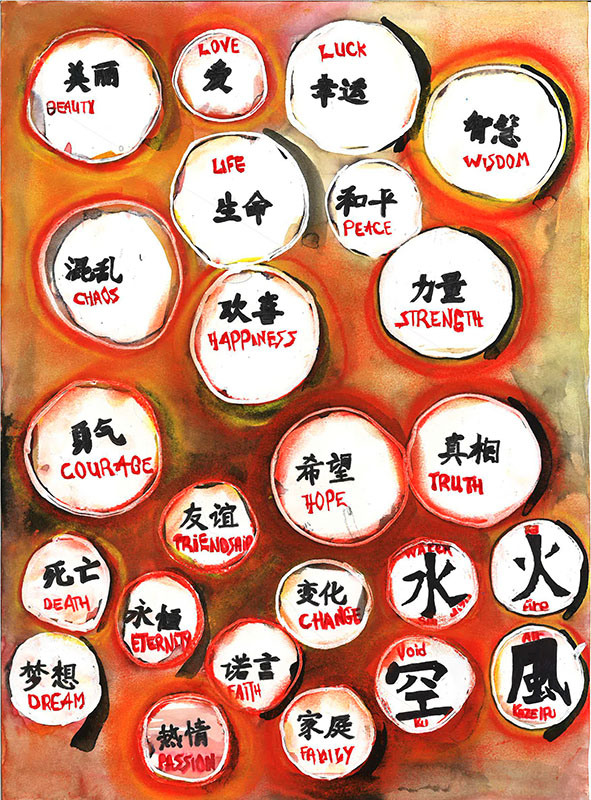 美丽
BEAUTY
LOVE
爱
LUCK
幸运
智慧
WISDOM
LIFE
生命
和平
PEACE
混乱
CHAOS
欢喜
HAPPINESS
力量
STRENGTH
勇气
COURAGE
希望
HOPE
真相
TRUTH
友谊
FRIENDSHIP
死亡
DEATH
永恒
ETERNITY
变化
CHANGE
WATER
水
火
梦想
DREAM
诺言
FAITH
Void
空
KU
AIR
風
热情
PASSION
家庭
FAMILY